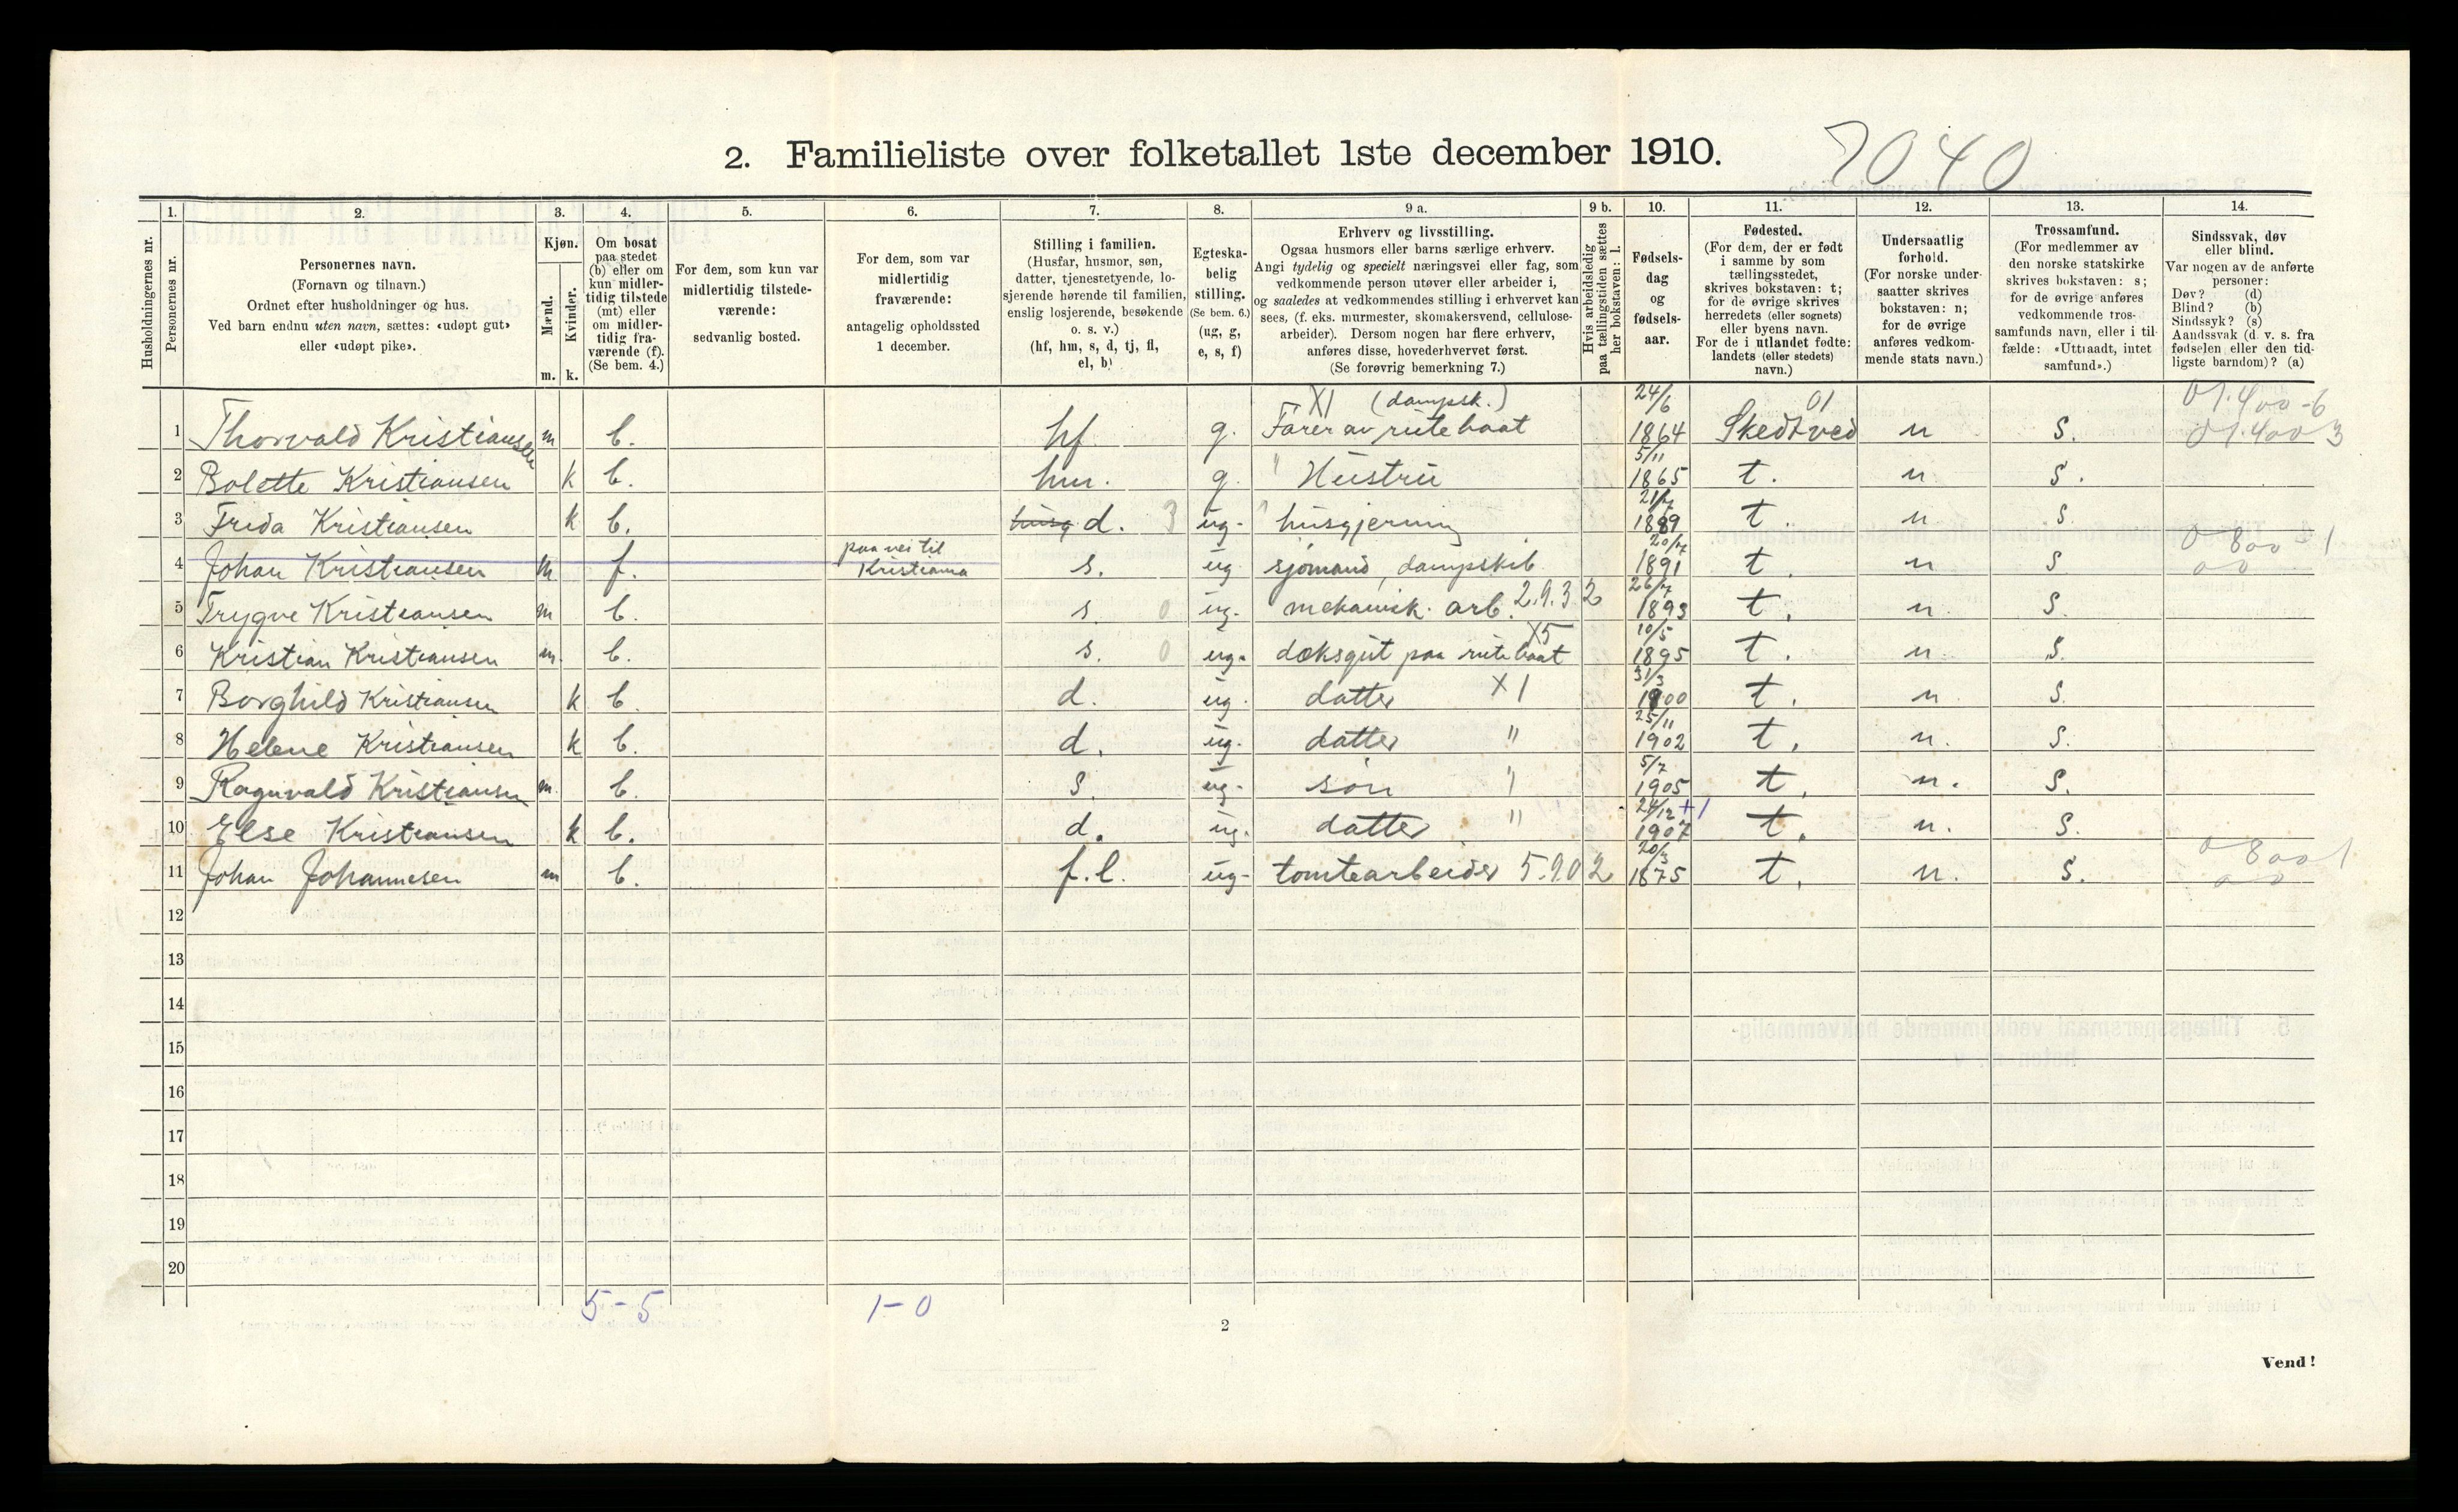 2. Familieliste over folketallet 1ste december 1910.
7040
Husholdningernes nr.
1.
Personernes nr.
2.
Personernes navn.
(Fornavn og tilnavn.)
Ordnet efter husholdninger og hus.
Ved barn endnu uten navn, sættes: «udøpt gut»
eller «udøpt pike».
3.
Kjøn.
Mænd.
Kvinder.
m. k.
4.
Om bosat
paa stedet
(b) eller om
kun midler-
tidig tilstede
(mt) eller
om midler-
tidig fra-
værende (f).
(Se bem. 4.)
5.
For dem, som kun var
midlertidig tilstede-
værende:
sedvanlig bosted.
6.
For dem, som var
midlertidig
fraværende:
antagelig opholdssted
1 december.
7.
Stilling i familien.
(Husfar, husmor, søn,
datter, tjenestetyende, lo-
sjerende hørende til familien,
enslig losjerende, besøkende
o. s. v.)
(hf, hm, s, d, tj, fl,
el, b)
8.
Egteska-
belig
stilling.
(Se bem. 6.)
(ug, g,
e, s, f)
9 a.
Erhverv og livsstilling.
Ogsaa husmors eller barns særlige erhverv.
Angi tydelig og specielt næringsvei eller fag, som
vedkommende person utøver eller arbeider i,
og saaledes at vedkommendes stilling i erhvervet kan
sees, (f. eks. murmester, skomakersvend, cellulose-
arbeider). Dersom nogen har flere erhverv,
anføres disse, hovederhvervet først.
(Se forøvrig bemerkning 7.)
9 b.
Hvis arbeidsledig
paa tællingstiden sættes
her bokstaven: l.
10.
Fødsels-
dag
og
fødsels-
aar.
11.
Fødested.
(For dem, der er født
i samme by som
tællingsstedet,
skrives bokstaven: t;
for de øvrige skrives
herredets (eller sognets)
eller byens navn.
For de i utlandet fødte:
landets (eller stedets)
navn.)
12.
Undersaatlig
forhold.
(For norske under-
saatter skrives
bokstaven: n;
for de øvrige
anføres vedkom-
mende stats navn.)
13.
Trossamfund.
(For medlemmer av
den norske statskirke
skrives bokstaven: s;
for de øvrige anføres
vedkommende tros-
samfunds navn, eller i til-
fælde: «Uttraadt, intet
samfund».)
14.
Sindssvak, døv
eller blind.
Var nogen av de anførte
personer:
Døv? (d)
Blind? (b)
Sindssyk? (s)
Aandssvak (d. v. s. fra
fødselen eller den tid-
ligste barndom)? (a)
X1 (dampsk.) 24/6 01 01.400-6
1 Thorvald Kristiansen m b. hf g. Fører av rutebaat 1864 Skedtved n s. 01.400 3
2 Bolette Kristiansen k b. hm. g. " Hustru 5/11 1865 t. n s.
3 Frida Kristiansen k b. husg d. 3 ug. " husgjerning 1889 t. n s
4 Johan Kristiansen m f. paa vei til Kristiania s. ug sjømand, dampskib 1891 t. n s 0 800 1
5 Trygve Kristiansen m b. s. 0 ug. mekanisk. arb. 2.9.3 2 26/7 1893 t. n. s.
6 Kristian Kristiansen m. b. s. 0 ug. dæksgut paa rutebaat X5 10/5 1895 t. n. s.
7 Borghild Kristiansen k b. d. ug. datter X1 31/3 1900 t. n. s.
8 Helene Kristiansen k b. d. ug. datter " 25/11 1902 t. n. s.
9 Ragnvald Kristiansen m. b. s. ug. søn " 5/7 1905 t. n. s.
10 Else Kristiansen k b. d. ug. datter " 24/12 +1 1907 t. n. s.
11 Johan Johannesen m b. f.l. ug. tomtearbeider 5.9.0 2 20/3 1875 t. n. s. 0 800 1
12
13
14
15
16
17
18
19
20
5-5 1-0
2
Vend!